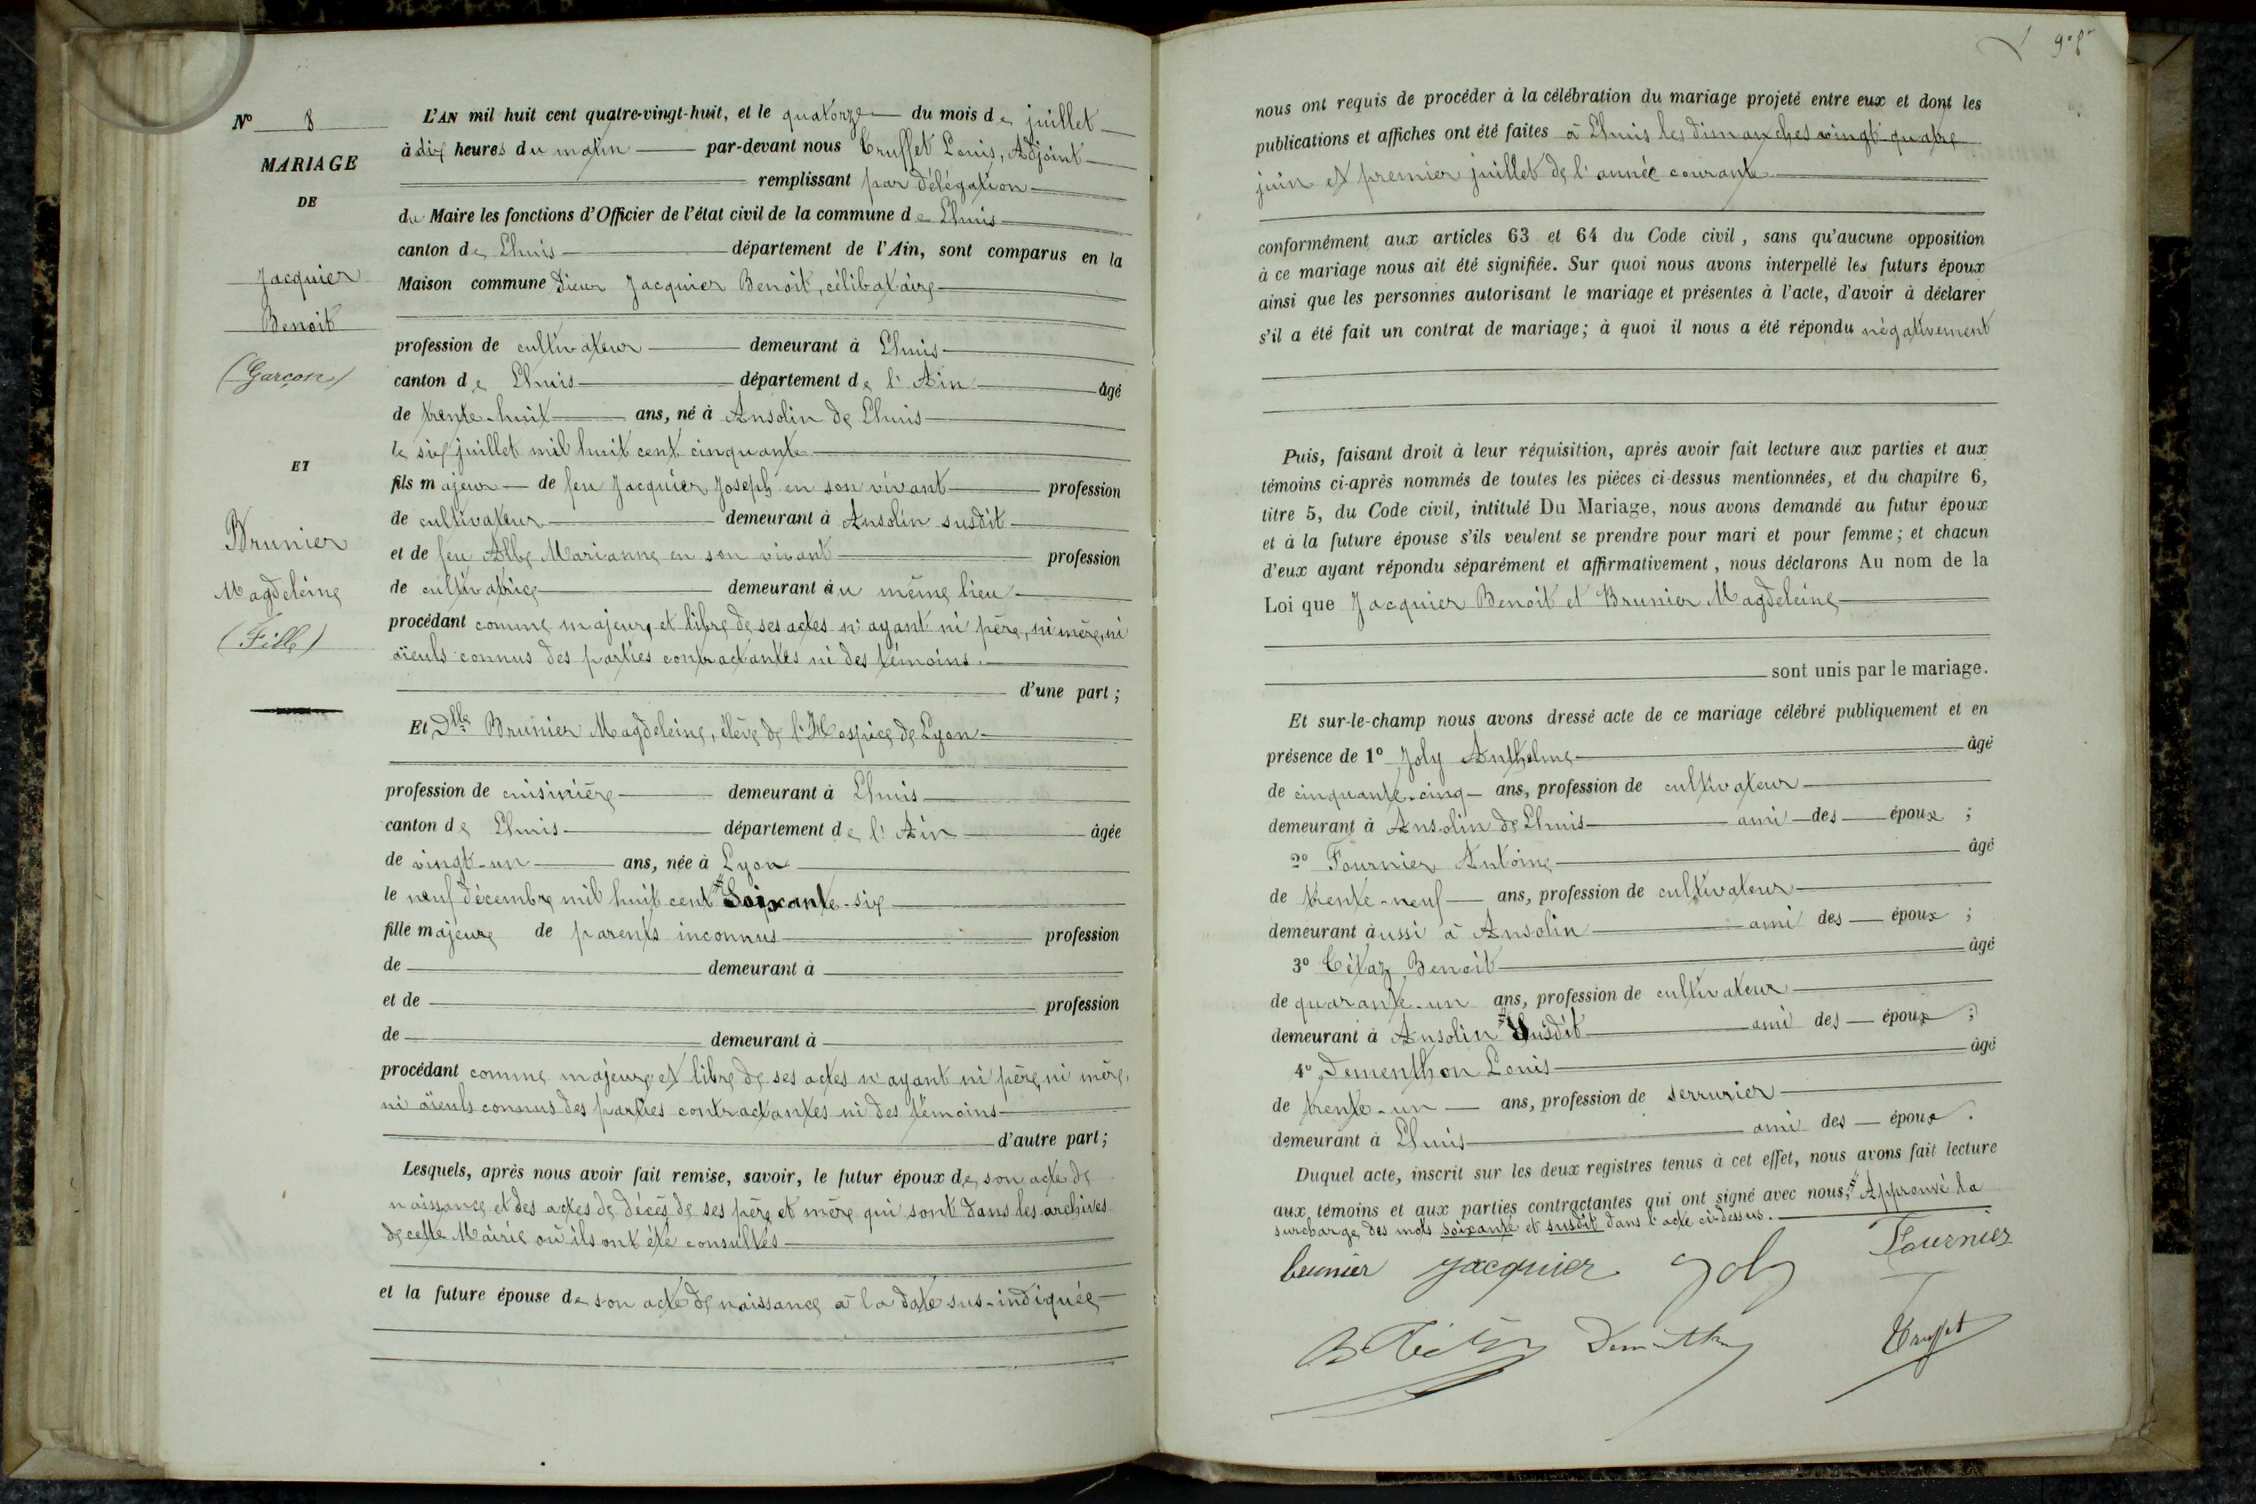 N° 8
MARIAGE
DE
Jacquier
Benoit
(Garçon)
ET
Brunier
Magdeleine
(Fille)
L'AN mil huit cent quatre-vingt-huit, et le quatorze du mois de juillet
à dix heures du matin par-devant nous Truffet Louis, Adjoint
remplissant par délégation
du Maire les fonctions d'Officier de l'état civil de la commune de Lhuis
canton de Lhuis département de l'Ain, sont comparus en la
Maison commune Sieur Jacquier Benoit, célibataire
profession de cultivateur demeurant à Lhuis
canton de Lhuis département de l'Ain âgé
de trente-huit ans, né à Ansolin de Lhuis
le six juillet mil huit cent cinquante
fils majeur de feu Jacquier Joseph en son vivant profession
de cultivateur demeurant à Ansolin susdit
et de feu Albe Marianne en son vivant profession
de cultivatrice demeurant au même lieu
procédant comme majeur, et libre de ses actes n'ayant ni père, ni mère, ni
aïeuls connus des parties contractantes ni des témoins.
d'une part;
Et Dlle Brunier Magdeleine, élève de l'Hospice de Lyon
profession de cuisinière demeurant à Lhuis
canton de Lhuis département de l'Ain âgée
de vingt-un ans, née à Lyon
le neuf décembre mil huit cent Soixante-six
fille majeure de parents inconnus profession
de demeurant à
et de profession
de demeurant à
procédant comme majeure et libre de ses actes n'ayant ni père, ni mère,
ni aïeuls connus des parties contractantes ni des témoins
d'autre part;
Lesquels, après nous avoir fait remise, savoir, le futur époux de son acte de
naissance et des actes de décès de ses père et mère qui sont dans les archives
de cette Mairie où ils ont été consultés
et la future épouse de son acte de naissance à la date sus-indiquée
nous ont requis de procéder à la célébration du mariage projeté entre eux et dont les
publications et affiches ont été faites à Lhuis les dimanches vingt-quatre
juin et premier juillet de l'année courante
conformément aux articles 63 et 64 du Code civil, sans qu'aucune opposition
à ce mariage nous ait été signifiée. Sur quoi nous avons interpellé les futurs époux
ainsi que les personnes autorisant le mariage et présentes à l'acte, d'avoir à déclarer
s'il a été fait un contrat de mariage; à quoi il nous a été répondu négativement
Puis, faisant droit à leur réquisition, après avoir fait lecture aux parties et aux
témoins ci-après nommés de toutes les pièces ci-dessus mentionnées, et du chapitre 6,
titre 5, du Code civil, intitulé Du Mariage, nous avons demandé au futur époux
et à la future épouse s'ils veulent se prendre pour mari et pour femme; et chacun
d'eux ayant répondu séparément et affirmativement, nous déclarons Au nom de la
Loi que Jacquier Benoit et Brunier Magdeleine
sont unis par le mariage.
Et sur-le-champ nous avons dressé acte de ce mariage célébré publiquement et en
présence de 1° Joly Anthelme âgé
de cinquante-cinq ans, profession de cultivateur
demeurant à Ansolin de Lhuis ami des époux;
2° Fournier Antoine âgé
de trente-neuf ans, profession de cultivateur
demeurant aussi à Ansolin ami des époux;
3° Tétaz Benoit âgé
de quarante-un ans, profession de cultivateur
demeurant à Ansolin Susdit ami des époux;
4° Dementhon Louis âgé
de trente-un ans, profession de serrurier
demeurant à Lhuis ami des époux.
Duquel acte, inscrit sur les deux registres tenus à cet effet, nous avons fait lecture
aux témoins et aux parties contractantes qui ont signé avec nous, Approuvé la
surcharge des mots soixante et susdit dans l'acte ci-dessus.
brunier Jacquier Joly Fournier